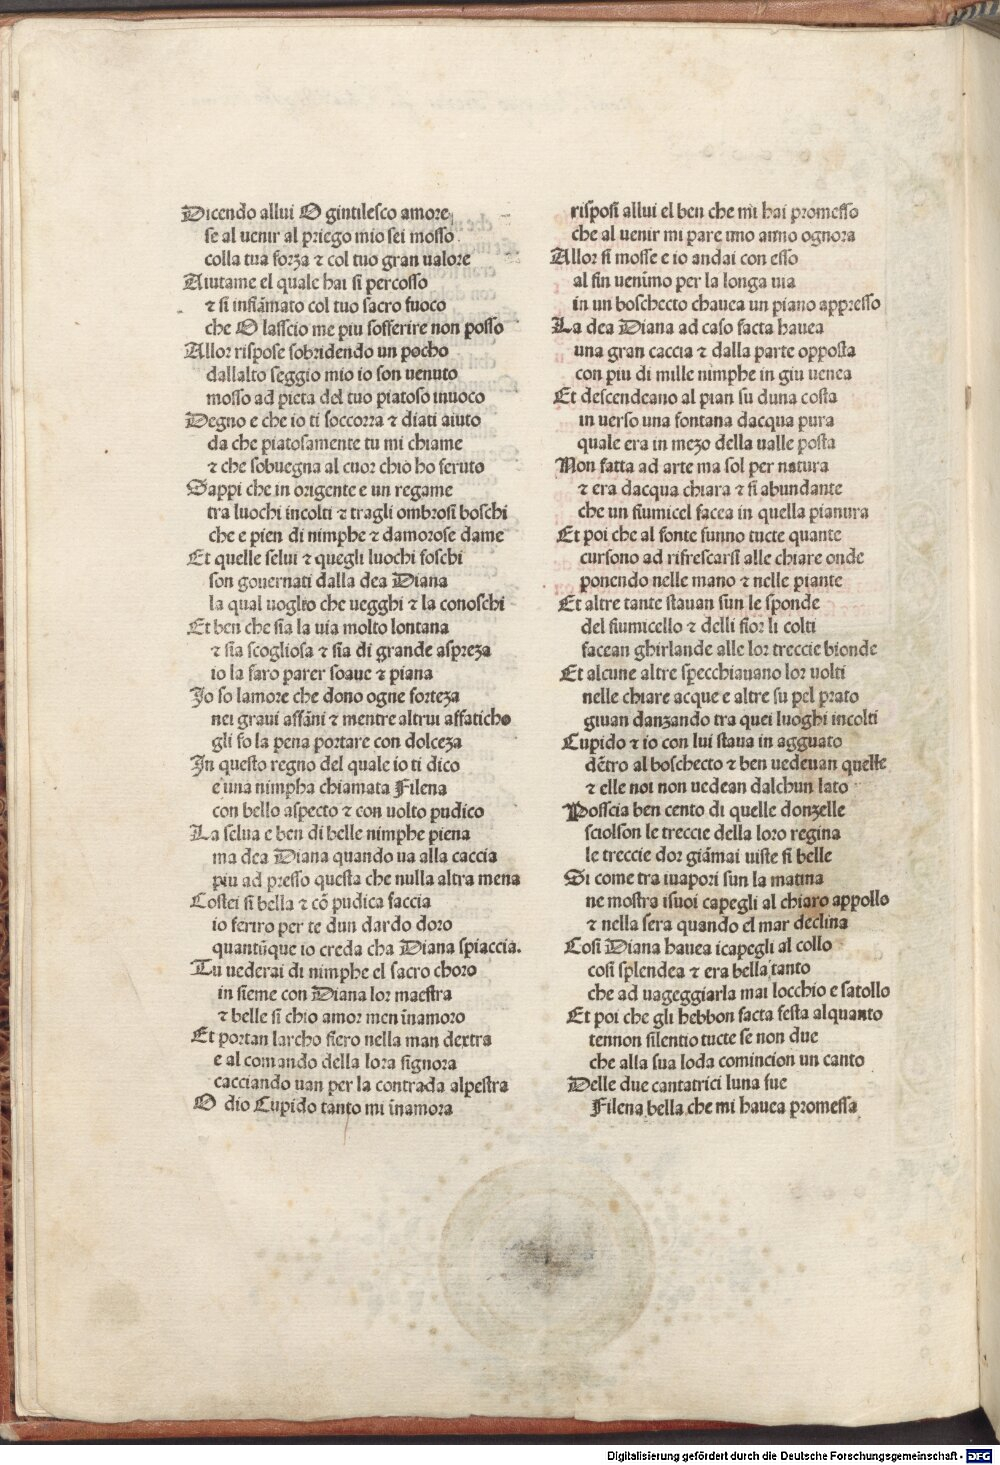 Dicendo allui O gintilesco amore
se al uenir al priego mio sei mosso
colla tua forza ⁊ col tuo gran ualore
Aiutame el quale hai si percosso
⁊ si infiãmato col tuo sacro fuoco
che O lasscio me piu sofferire non posso
Allor rispose sobridendo un pocho
dallalto seggio mio io son uenuto
mosso ad pieta del tuo piatoso inuoco
Degno e che io ti soccorra ⁊ diati aiuto
da che piatosamente tu mi chiame
⁊ che sobuegna al cuor chio ho feruto
Sappi che in origente e un regame
tra luochi incolti ⁊ tragli ombrosi boschi
che e pien di nimphe ⁊ damorose dame
Et quelle selui ⁊ quegli luochi foschi
son gouernati dalla dea Diana
la qual uoglio che uegghi ⁊ la conoschi
Et ben che sia la uia molto lontana
⁊ sia scogliosa ⁊ sia di grande aspreza
io la faro parer soaue ⁊ piana
Io so lamore che dono ogne forteza
nei graui affãni ⁊ mentre altrui affaticho
gli fo la pena portare con dolceza
In questo regno del quale io ti dico
e una nimpha chiamata Filena
con bello aspecto ⁊ con uolto pudico
La selua e ben di belle nimphe piena
ma dea Diana quando ua alla caccia
piu ad presso questa che nulla altra mena
Costei si bella ⁊ cõ pudica faccia
io feriro per te dun dardo doro
quantũque io creda cha Diana spiaccia.
Tu uederai di nimphe el sacro choro
in sieme con Diana lor maestra
⁊ belle si chio amor men ĩnamoro
Et portan larcho fiero nella man dextra
e al comando della lora signora
cacciando uan per la contrada alpestra
O dio Cupido tanto mi ĩnamora
risposi allui el ben che mi hai promesso
che al uenir mi pare uno anno ognora
Allor si mosse e io andai con esso
al fin uenimo per la longa uia
in un boschecto chauea un piano appresso
La dea Diana ad caso facta hauea
una gran caccia ⁊ dalla parte opposta
con piu di mille nimphe in giu uenea
Et descendeano al pian su duna costa
in uerso una fontana dacqua pura
quale era in mezo della ualle posta
Non fatta ad arte ma sol per natura
⁊ era dacqua chiara ⁊ si abundante
che un fiumicel facea in quella pianura
Et poi che al fonte funno tucte quante
cursono ad rifrescarsi alle chiare onde
ponendo nelle mano ⁊ nelle piante
Et altre tante stauan sun le sponde
del fiumicello ⁊ delli fior li colti
facean ghirlande alle lor treccie bionde
Et alcune altre specchiauano lor uolti
nelle chiare acque e altre su pel prato
giuan danzando tra quei luoghi incolti
Cupido ⁊ io con lui staua in agguato
dẽtro al boschecto ⁊ ben uedeuan quelle
⁊ elle noi non uedean dalchun lato
Posscia ben cento di quelle donzelle
sciolson le treccie della loro regina
le treccie dor giãmai uiste si belle
Si come tra iuapori sun la matina
ne mostra isuoi capegli al chiaro appollo
⁊ nella sera quando el mar declina
Cosi Diana hauea icapegli al collo
cosi splendea ⁊ era bella tanto
che ad uageggiarla mai locchio e satollo
Et poi che gli hebbon facta festa alquanto
tennon silentio tucte se non due
che alla sua loda comincion un canto
Delle due cantatrici luna fue
Filena bella che mi hauea promessa
Digitalisierung gefördert durch die Deutsche Forschungsgemeinschaft - DFG